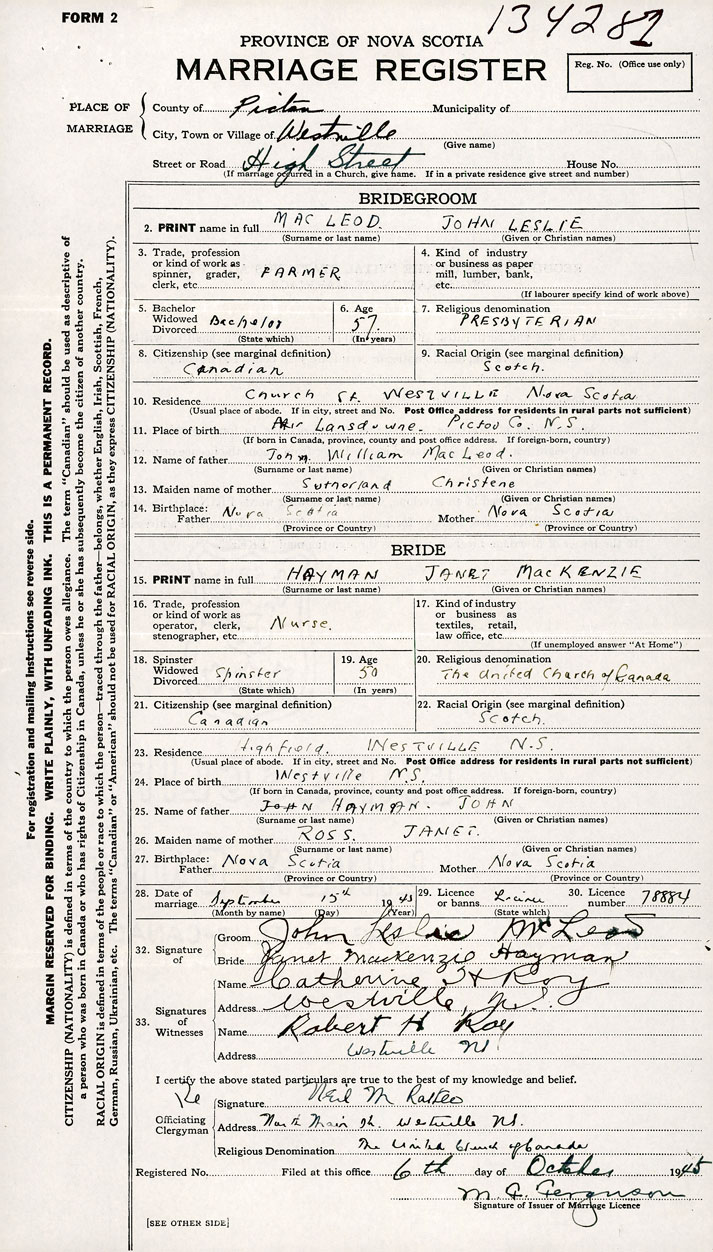 FORM 2
134287
PROVINCE OF NOVA SCOTIA
MARRIAGE REGISTER
Reg. No. (Office use only)
PLACE OF MARRIAGE
County of Pictou Municipality of
City, Town or Village of Westville
(Give name)
Street or Road High Street House No.
(If marriage occurred in a Church, give name. If in a private residence give street and number)
BRIDEGROOM
2. PRINT name in full MAC LEOD. JOHN LESLIE
(Surname or last name) (Given or Christian names)
3. Trade, profession or kind of work as spinner, grader, clerk, etc. FARMER
4. Kind of industry or business as paper mill, lumber, bank, etc.
(If labourer specify kind of work above)
5. Bachelor Widowed Divorced Bachelor
(State which)
6. Age 57.
(In years)
7. Religious denomination
PRESBYTERIAN
8. Citizenship (see marginal definition)
Canadian
9. Racial Origin (see marginal definition)
Scotch.
10. Residence Church St. WESTVILLE Nova Scotia
(Usual place of abode. If in city, street and No. Post Office address for residents in rural parts not sufficient)
11. Place of birth Lansdowne. Pictou Co. N.S.
(If born in Canada, province, county and post office address. If foreign-born, country)
12. Name of father John William MacLeod.
(Surname or last name) (Given or Christian names)
13. Maiden name of mother Sutherland Christene
(Surname or last name) (Given or Christian names)
14. Birthplace: Father Nova Scotia Mother Nova Scotia
(Province or Country) (Province or Country)
BRIDE
15. PRINT name in full HAYMAN JANET MacKENZIE
(Surname or last name) (Given or Christian names)
16. Trade, profession or kind of work as operator, clerk, stenographer, etc. Nurse.
17. Kind of industry or business as textiles, retail, law office, etc.
(If unemployed answer "At Home")
18. Spinster Widowed Divorced Spinster
(State which)
19. Age 50
(In years)
20. Religious denomination
The United Church of Canada
21. Citizenship (see marginal definition)
Canadian
22. Racial Origin (see marginal definition)
Scotch.
23. Residence Highfield. WESTVILLE N.S.
(Usual place of abode. If in city, street and No. Post Office address for residents in rural parts not sufficient)
24. Place of birth Westville N.S.
(If born in Canada, province, county and post office address. If foreign-born, country)
25. Name of father JOHN HAYMAN. JOHN
(Surname or last name) (Given or Christian names)
26. Maiden name of mother ROSS. JANET.
(Surname or last name) (Given or Christian names)
27. Birthplace: Father Nova Scotia Mother Nova Scotia
(Province or Country) (Province or Country)
28. Date of marriage September 15th 1945
(Month by name) (Day) (Year)
29. Licence or banns License
(State which)
30. Licence number 78884
32. Signature of
Groom John Leslie McLeod
Bride Janet Mackenzie Hayman
33. Signatures of Witnesses
Name Catherine H Roy
Address Westville, N.S.
Name Robert H Roy
Address Westville NS
I certify the above stated particulars are true to the best of my knowledge and belief.
Officiating Clergyman
Signature Neil M
Address North Main St. Westville NS.
Religious Denomination The United Church of Canada
Registered No. Filed at this office 6th day of October 1945
M. Ferguson
Signature of Issuer of Marriage Licence
[SEE OTHER SIDE]
For registration and mailing instructions see reverse side.
MARGIN RESERVED FOR BINDING. WRITE PLAINLY, WITH UNFADING INK. THIS IS A PERMANENT RECORD.
CITIZENSHIP (NATIONALITY) is defined in terms of the country to which the person owes allegiance. The term "Canadian" should be used as descriptive of
a person who was born in Canada or who has rights of Citizenship in Canada, unless he or she has subsequently become the citizen of another country.
RACIAL ORIGIN is defined in terms of the people or race to which the person—traced through the father—belongs, whether English, Irish, Scottish, French,
German, Russian, Ukrainian, etc. The terms "Canadian" or "American" should not be used for RACIAL ORIGIN, as they express CITIZENSHIP (NATIONALITY).